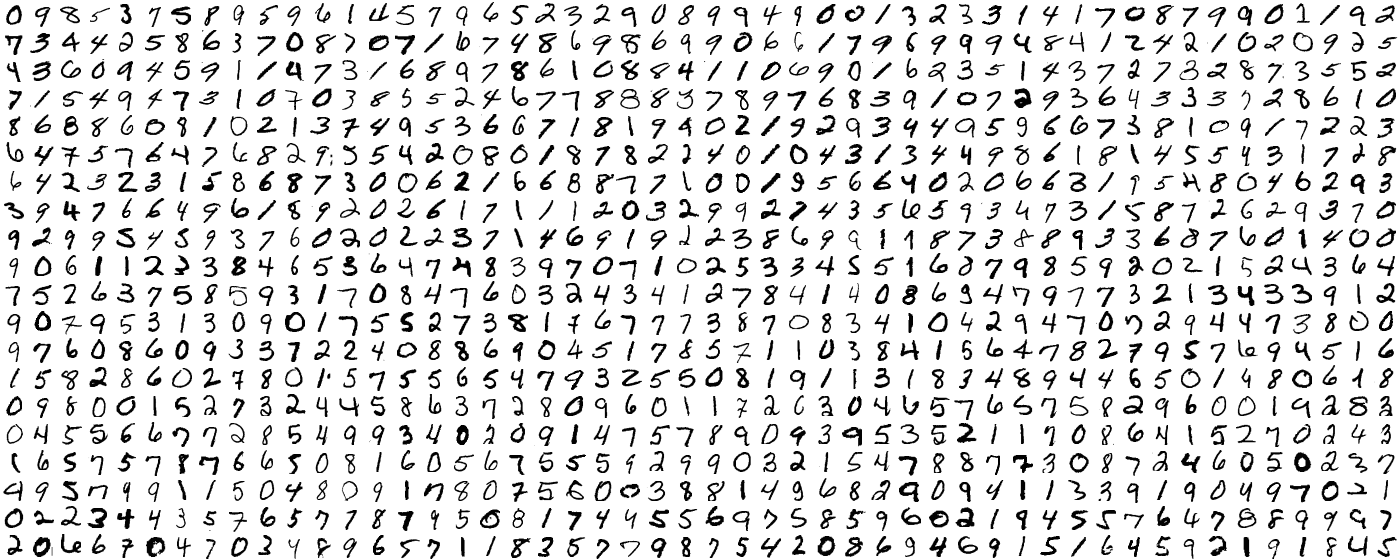 0 9 8 5 3 7 5 8 9 5 9 6 1 4 5 7 9 6 5 2 3 2 9 0 8 9 9 4 9 0 0 1 3 2 3 3 1 4 1 7 0 8 7 9 9 0 1 1 9 2
7 3 4 4 2 5 8 6 3 7 0 8 7 0 7 1 6 7 4 8 6 9 8 6 9 9 0 6 6 1 7 9 6 9 9 9 4 8 4 1 2 4 2 1 0 2 0 9 2 5
4 3 6 0 9 4 5 9 1 1 4 7 3 1 6 8 9 7 8 6 1 0 8 8 4 1 1 0 6 9 0 1 6 2 3 5 1 4 3 7 2 7 3 2 8 7 3 5 5 2
7 1 5 4 9 4 7 3 1 0 7 0 3 8 5 5 2 4 6 7 7 8 8 8 3 7 8 9 7 6 8 3 9 1 0 7 2 9 3 6 4 3 3 3 7 2 8 6 1 0
8 6 8 8 6 0 8 1 0 2 1 3 7 4 9 5 3 6 6 7 1 8 1 9 9 0 2 1 9 2 9 3 4 4 0 5 9 6 6 7 3 8 1 0 9 1 7 2 2 3
6 4 7 5 7 6 4 7 6 8 2 9 5 5 4 2 0 8 0 1 8 7 8 2 2 4 0 1 0 4 3 1 3 4 4 9 8 6 1 8 1 4 5 5 4 3 1 7 2 8
6 4 2 3 2 3 1 5 8 6 8 7 3 0 0 6 2 1 6 6 8 8 7 7 1 0 0 1 9 5 6 6 4 0 2 0 6 6 3 1 9 5 4 8 0 4 6 2 9 3
3 9 4 7 6 6 4 9 6 1 8 9 2 0 2 6 1 7 1 1 1 2 0 3 2 9 9 2 7 4 3 5 6 5 9 3 4 7 3 1 5 8 7 2 6 2 9 3 7 0
9 2 9 9 5 4 5 9 3 7 6 0 2 0 2 2 3 7 1 4 6 9 1 9 2 2 3 8 6 9 9 1 1 8 7 3 8 8 9 3 3 6 8 7 6 0 1 4 0 0
9 0 6 1 1 2 3 3 8 4 6 5 3 6 4 7 4 8 3 9 7 0 7 1 0 2 5 3 3 4 5 5 1 6 2 7 9 8 5 9 2 0 2 1 5 2 4 3 6 4
7 5 2 6 3 7 5 8 5 9 3 1 7 0 8 4 7 6 0 3 2 4 3 4 1 2 7 8 4 1 4 0 8 6 9 4 7 9 7 7 3 2 1 3 4 3 3 9 1 2
9 0 7 9 5 3 1 3 0 9 0 1 7 5 5 2 7 3 8 1 7 6 7 7 7 3 8 7 0 8 3 4 1 0 4 2 9 4 7 0 7 2 9 4 4 7 3 8 0 0
9 7 6 0 8 6 0 9 3 3 7 2 2 4 0 8 8 6 9 0 4 5 1 7 8 5 7 1 1 0 3 8 4 1 5 6 4 7 8 2 7 9 5 7 6 9 4 5 1 6
1 5 8 2 8 6 0 2 7 8 0 1 5 7 5 5 6 5 4 7 9 3 2 5 5 0 8 1 9 1 1 3 1 8 3 4 8 9 4 4 6 5 0 1 4 8 0 6 1 8
0 9 8 0 0 1 5 2 7 3 2 4 4 5 8 6 3 7 2 8 0 9 6 0 1 1 7 2 6 3 0 4 6 5 7 6 5 7 5 8 2 9 6 0 0 1 9 2 8 3
0 4 5 5 6 6 7 7 2 8 5 4 9 9 3 4 0 2 0 9 1 4 7 5 7 8 9 0 9 3 9 5 3 5 2 1 1 7 0 8 6 4 1 5 2 7 0 2 4 3
1 6 5 7 5 7 8 7 6 6 5 0 8 1 6 0 5 6 7 5 5 5 9 2 9 9 0 3 2 1 5 4 7 8 8 7 7 3 0 8 7 2 4 6 0 5 0 2 3 7
9 9 5 7 9 9 1 1 5 0 4 8 0 9 1 7 8 0 7 5 6 0 0 3 8 8 1 4 9 6 8 2 9 0 9 4 1 1 3 3 9 1 9 0 4 9 7 0 2 1
0 2 2 3 4 4 3 5 7 6 5 7 7 8 7 9 5 0 8 1 7 4 4 5 5 6 9 7 5 8 5 9 6 0 2 1 9 4 5 5 7 6 4 7 8 8 9 9 9 7
2 0 6 6 7 0 4 7 0 3 4 8 9 6 5 7 1 1 8 3 5 7 7 9 8 7 5 4 2 0 8 6 9 4 6 9 1 5 1 6 4 5 9 2 1 9 1 8 4 5